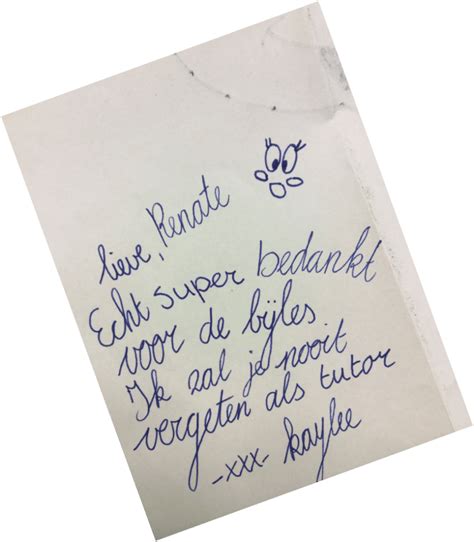 lieve, Renate
Echt super bedankt
voor de bijles
Ik zal je nooit
vergeten als tutor
-xxx- kaylee